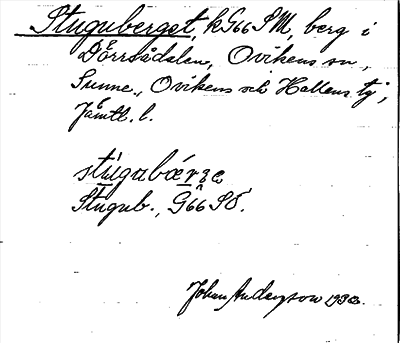 Stuguberget, kG66SM, berg i
Dörrsådalen, Ovikens sn,
Sunne, Ovikens och Hallens tg,
Jämtl. l.
Stugub., G66SÖ.
Johan Anderson 1930.